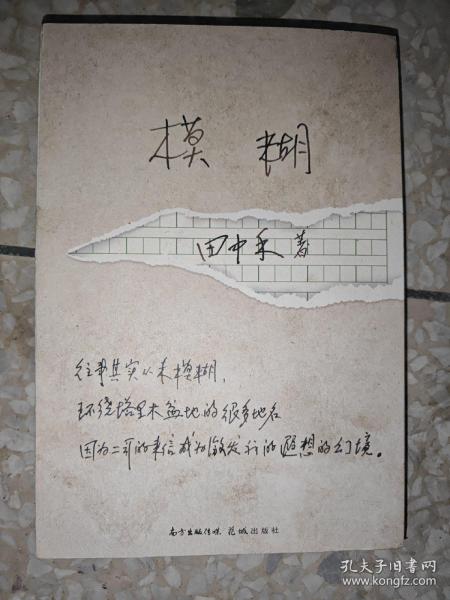 模 糊
田中禾 著
往事其实从未模糊，
环绕塔里木盆地的很多地名
因为二哥的来信成为激发我的遐想的幻境。
南方出版传媒 花城出版社
孔夫子旧书网
www.kongfz.com